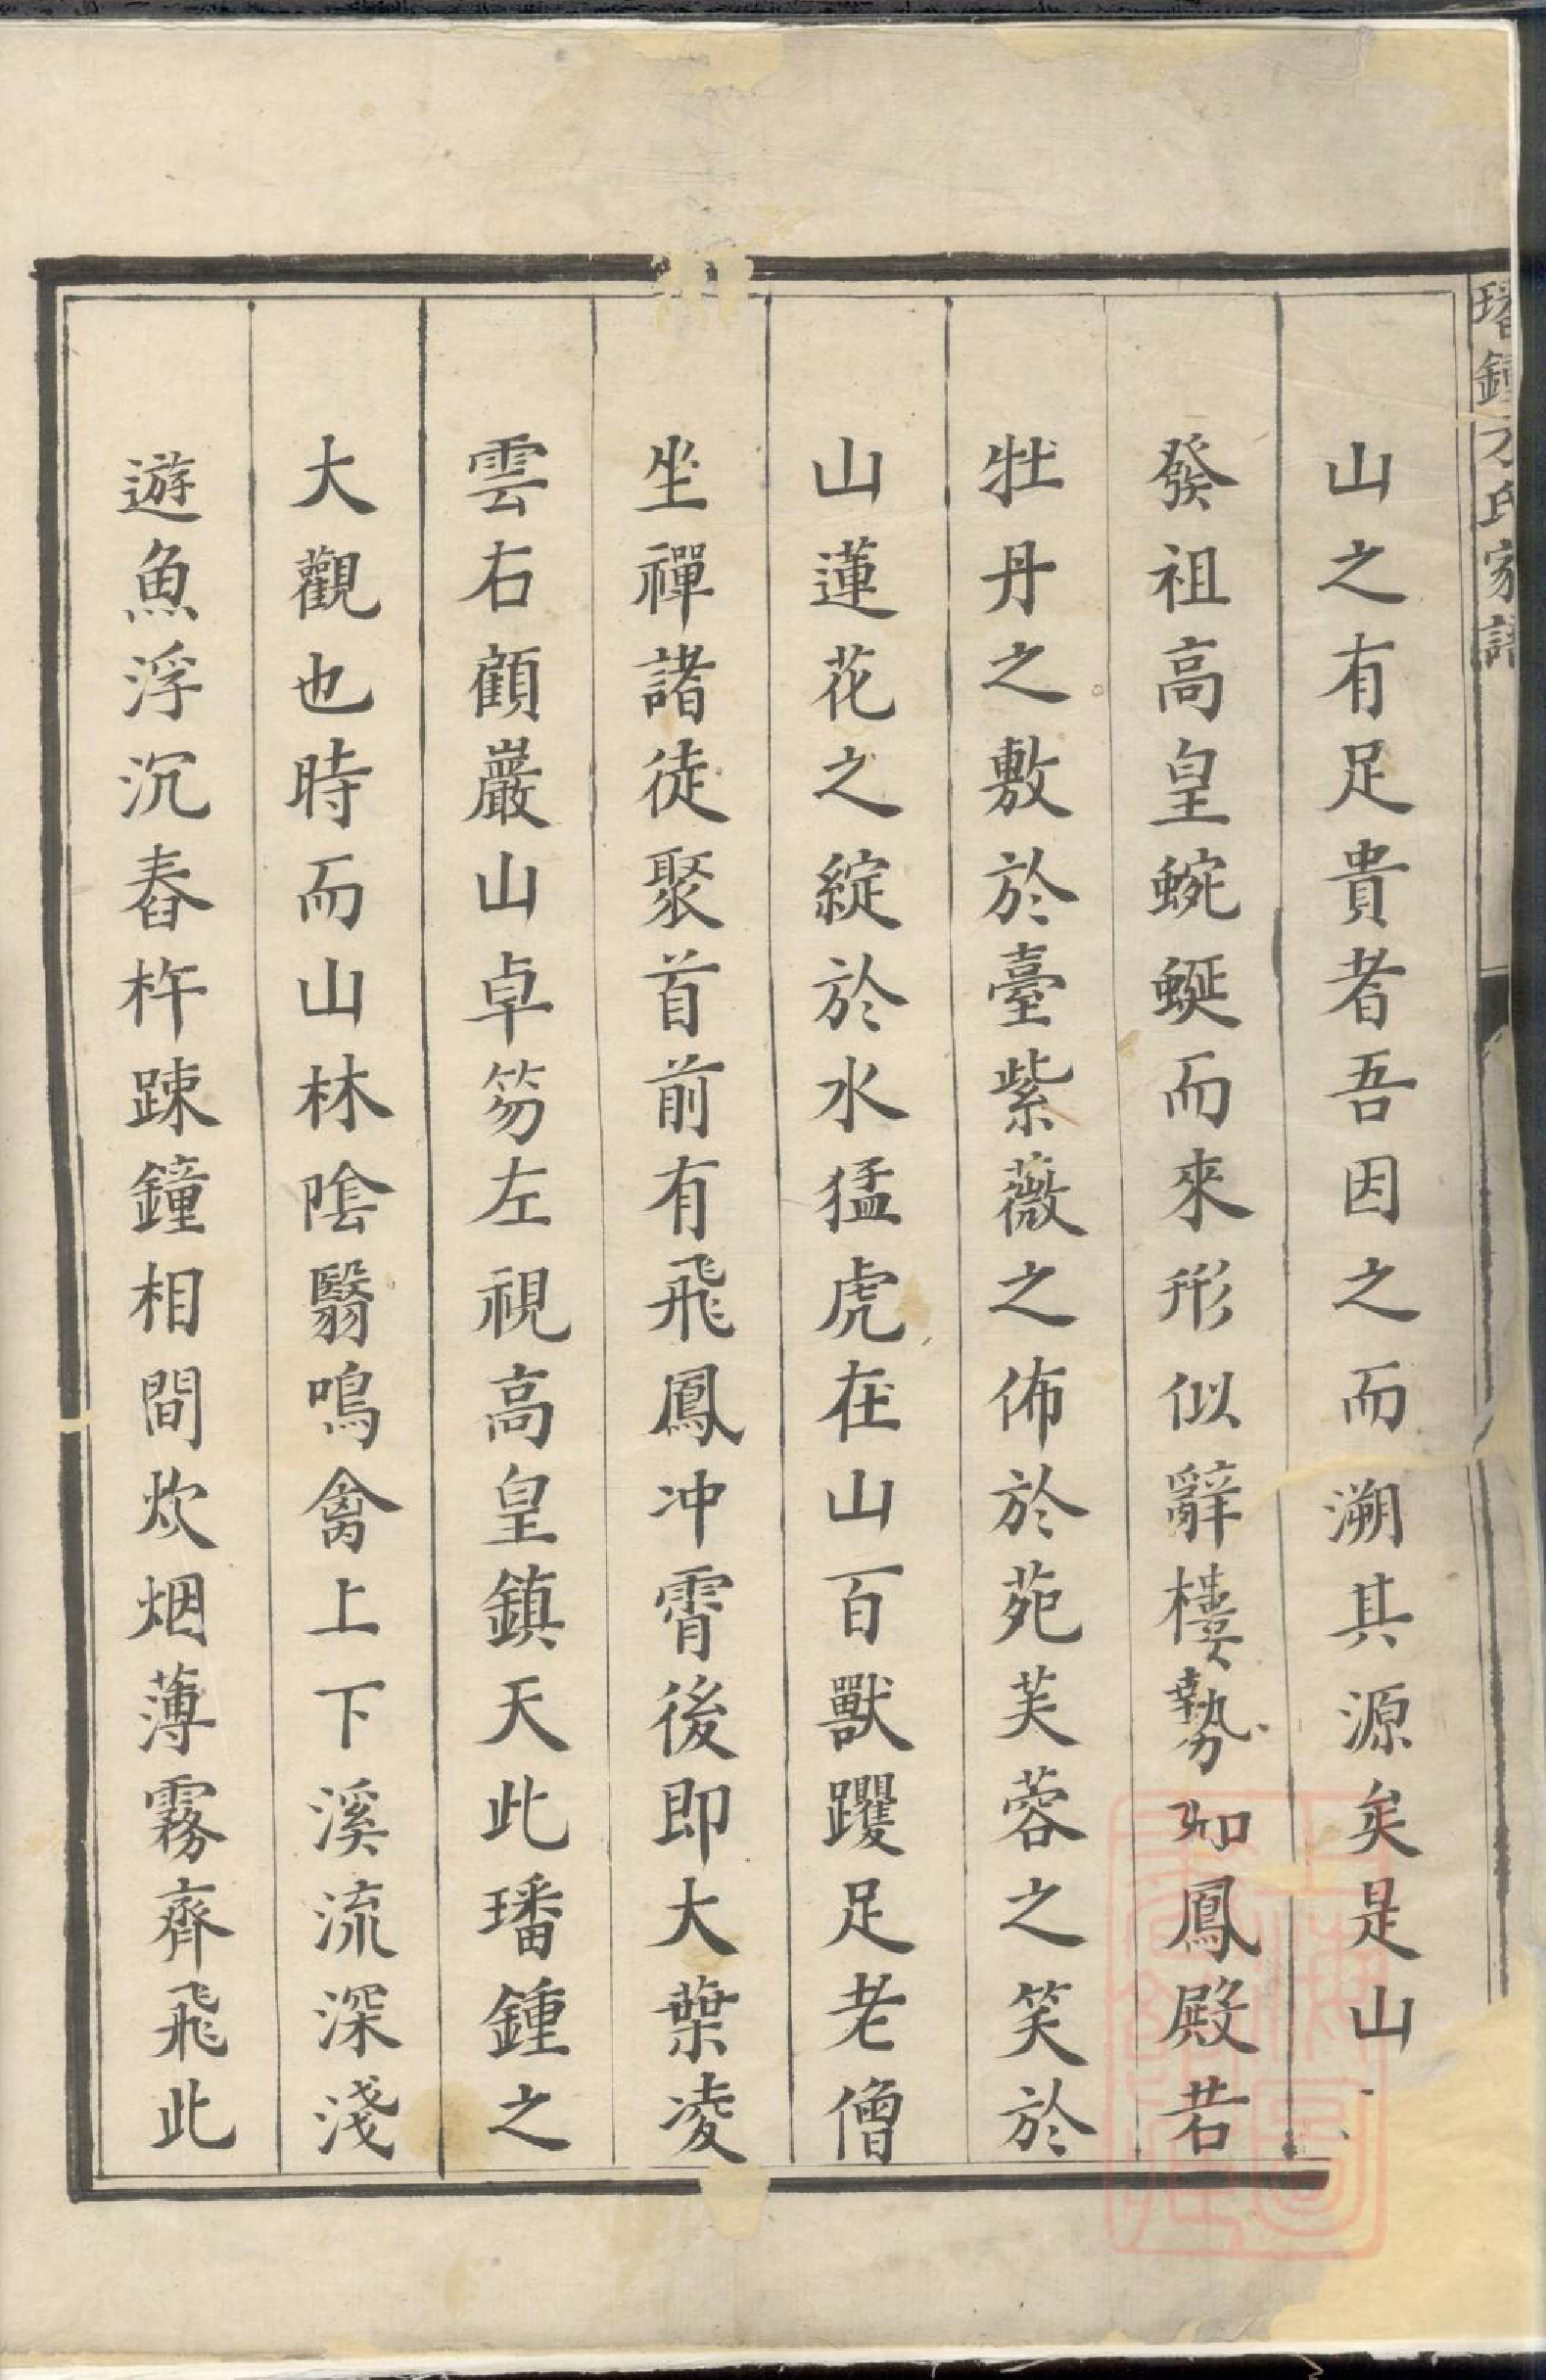 璠鍾方氏家譜
山之有足貴者吾因之而溯其源矣是山
發祖高皇蜿蜒而來形似辭樓勢如鳳殿若
牡丹之敷於臺紫薇之佈於苑芙蓉之笑於
山蓮花之綻於水猛虎在山百獸躩足老僧
坐禪諸徒聚首前有飛鳳冲霄後即大葉凌
雲右顧巖山卓笏左視高皇鎮天此璠鍾之
大觀也時而山林陰翳鳴禽上下溪流深淺
遊魚浮沉舂杵踈鐘相間炊烟薄霧齊飛此